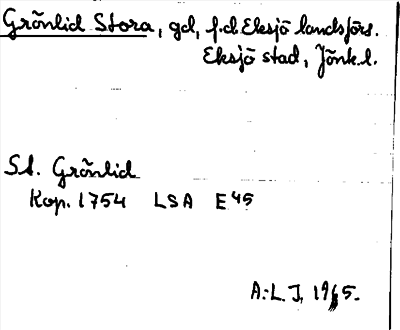 Grönlid Stora, gd, f.d. Eksjö landsförs.
Eksjö stad, Jönk. l.
St. Grönlid
Kop. 1754 LSA E 45
A.L.J. 1965.